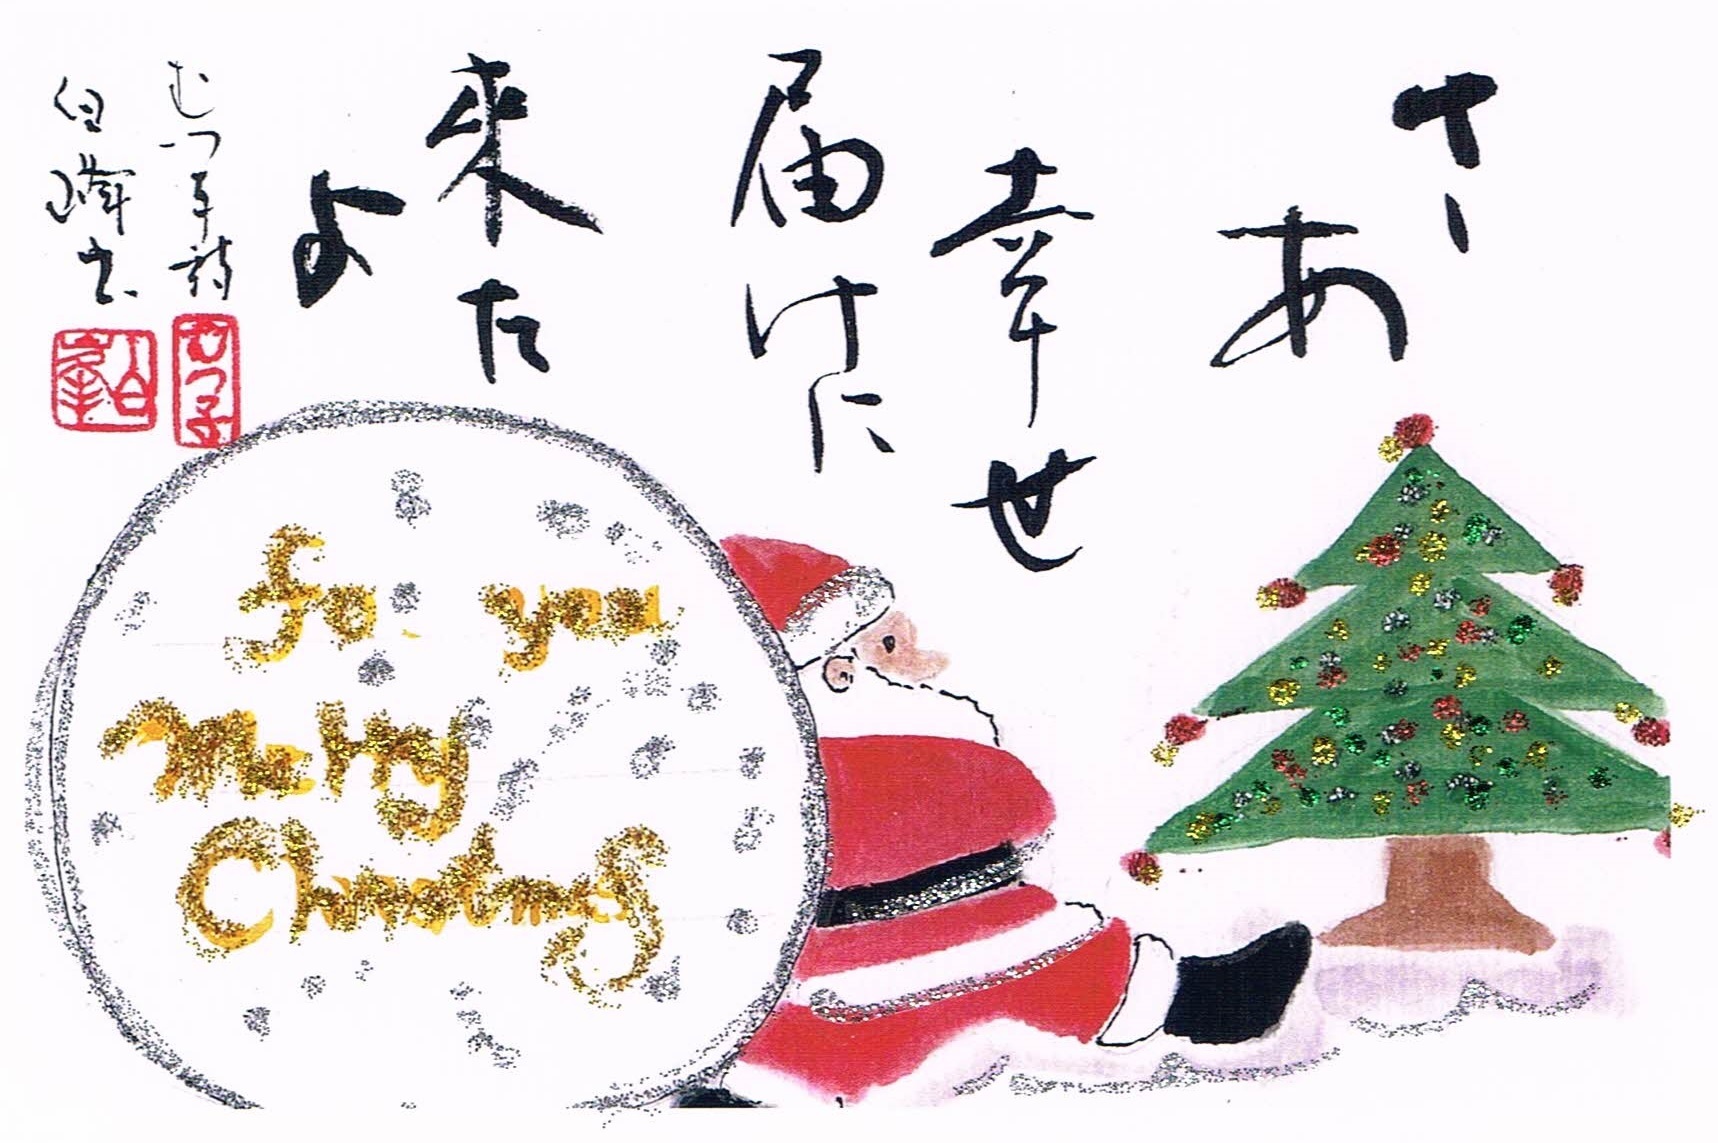 さあ
幸せ
届けに
来た
よ
むつ子詩
白峰書
むつ子
for you
Merry
Christmas